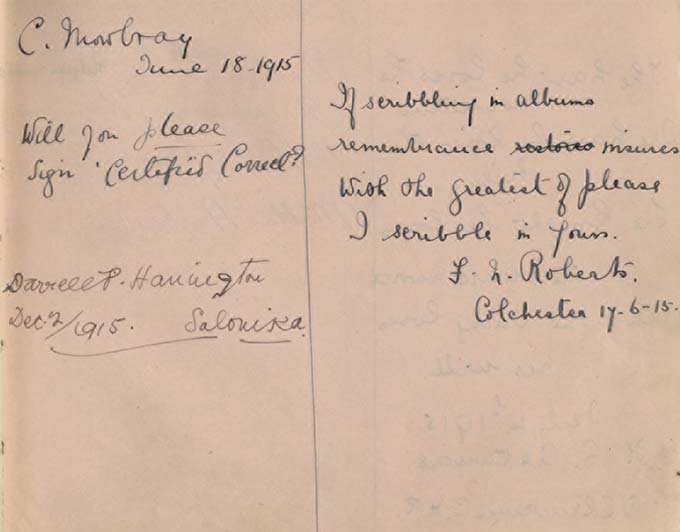 C. Mowbray
June 18-1915
Will you please
sign 'Certified Correct?'
Darrell P. Hanington
Dec. 2/1915. Salonika.
If scribbling in albums
remembrance restores insures
With the greatest of please
I scribble in yours.
F. N. Roberts.
Colchester 17-6-15.